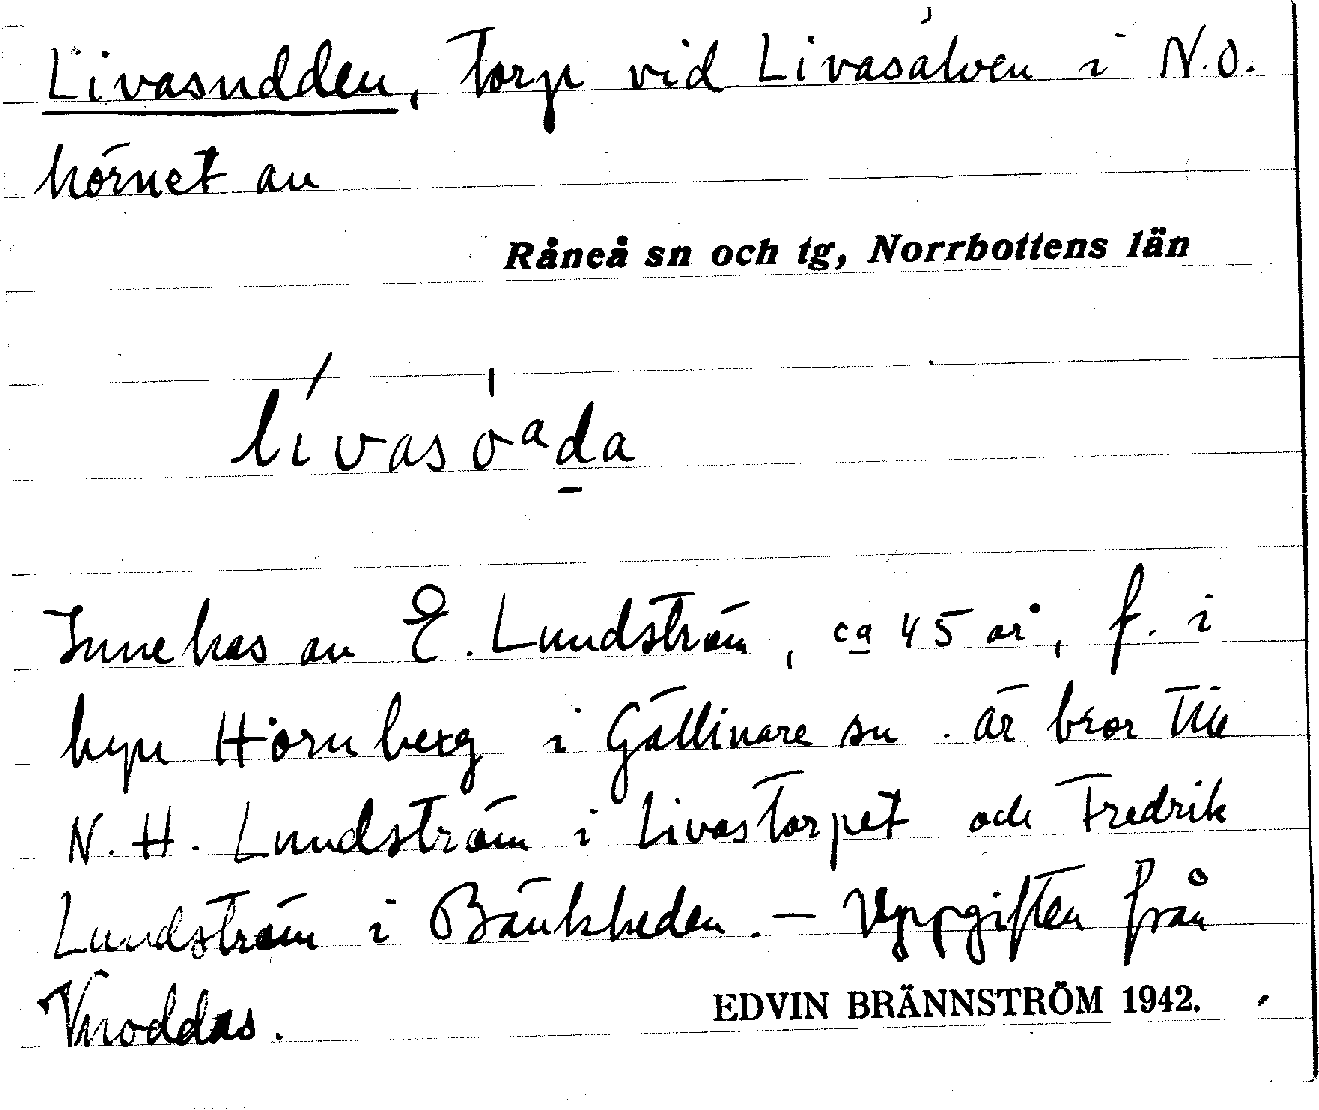 Livasudden, torp vid Livasälven i N.O.
hörnet av
Råneå sn och tg, Norrbottens län
lívasòᵃda
Innehas av E. Lundström, ca 45 år, f. i
byn Hornberg i Gällivare sn. är bror till
N. H. Lundström i Livastorpet och Fredrik
Lundström i Bänkheden. – Uppgiften från
Vuoddas.
EDVIN BRÄNNSTRÖM 1942.